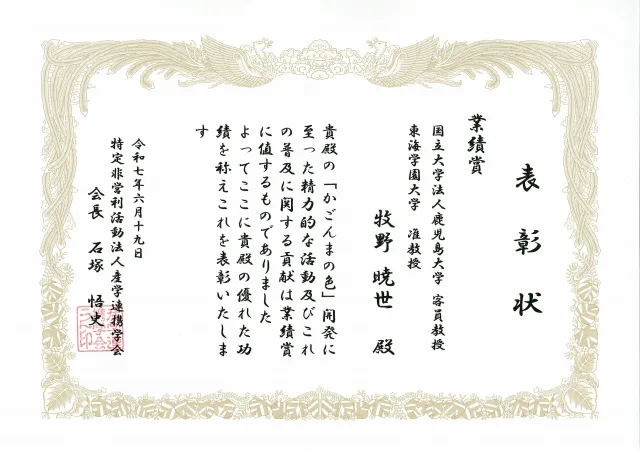 表彰状
業績賞
国立大学法人鹿児島大学 客員教授
東海学園大学 准教授
牧野 暁世 殿
貴殿の「かごんまの色」開発に
至った精力的な活動及びこれ
の普及に関する貢献は業績賞
に値するものでありました
よってここに貴殿の優れた功
績を称えこれを表彰いたしま
す
令和七年六月十九日
特定非営利活動法人産学連携学会
会長 石塚 悟史